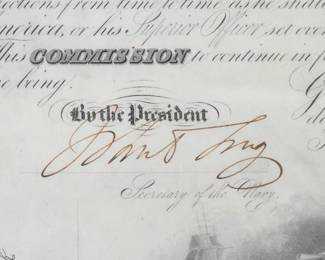 ections from time to time as he shall
merica, or his Superior Officer set over
This COMMISSION to continue in fo
e being.
By the President
Secretary of the Navy